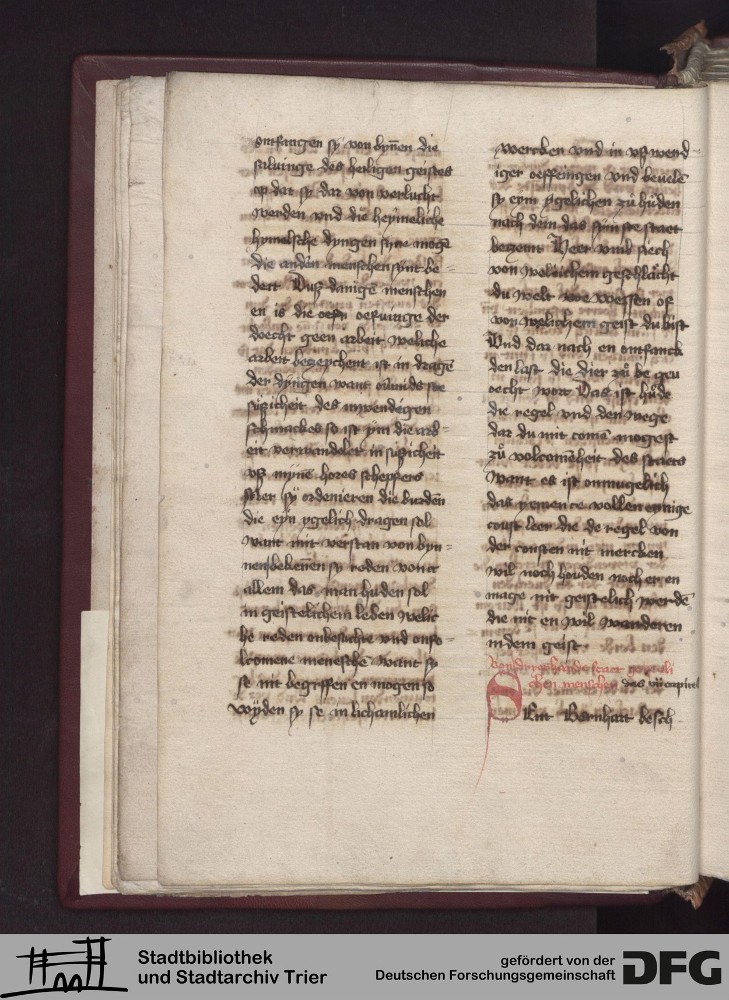 ontfangen sÿ von bynen die
saluinge des heiligen geistes
op dat sy dar von verlucht
werden vnd die heymeliche
hymelsche dyngen syne mogē
die anden menschen synt be=
dect Dusz danige menschen
en is die oefn oefuinge der
doecht geen arbeit weliche
arbeit bezeychent ist in dragē
der dyngen want ouermidz die
suszicheit des inwendegen
schmackes so ist ÿm die arb=
eit verwandelet in suszicheit
vsz mynē hores scheppers
Mer sÿ ordenieren die burden
die eyn ygelich dragen sol
want mit verstan von byn=
nen bekenen sy reden von
allem das man huden sol
in geistelichem leben welic
he reden onbesuchte vnd onfo=
lcomene menesche want sy
se nit begriffen en mogen so
voÿden sy se in lichamlichen
wercken vnd in vszwend
iger oeffeingen vnd beuelē
sy eym ygelichen zů huden
nach dem das sÿm ste staet
bezemt Heer vmb siech
von welichem geschlacht
du welt wie wessen of
von welichem geist du bist
Vnd dar nach en ontfanck
den last die dier zů be geu
oecht wort Das ist hude
die regel vnd den wege
dar du mit comē mogest
zů volcomēheit des staets
want es ist onmugelich
das yemen ce vollen eynige
const leer die de regel von
der consten nit mercken
wil noch houden noch er en
mage nit geistelich werdē
die nit en wil wanderen
in dem geist
von dryerhande staet geisteli
chen menschen das vij capitel
Sint Bernhart besch
Stadtbibliothek
und Stadtarchiv Trier
gefördert von der
Deutschen Forschungsgemeinschaft
DFG